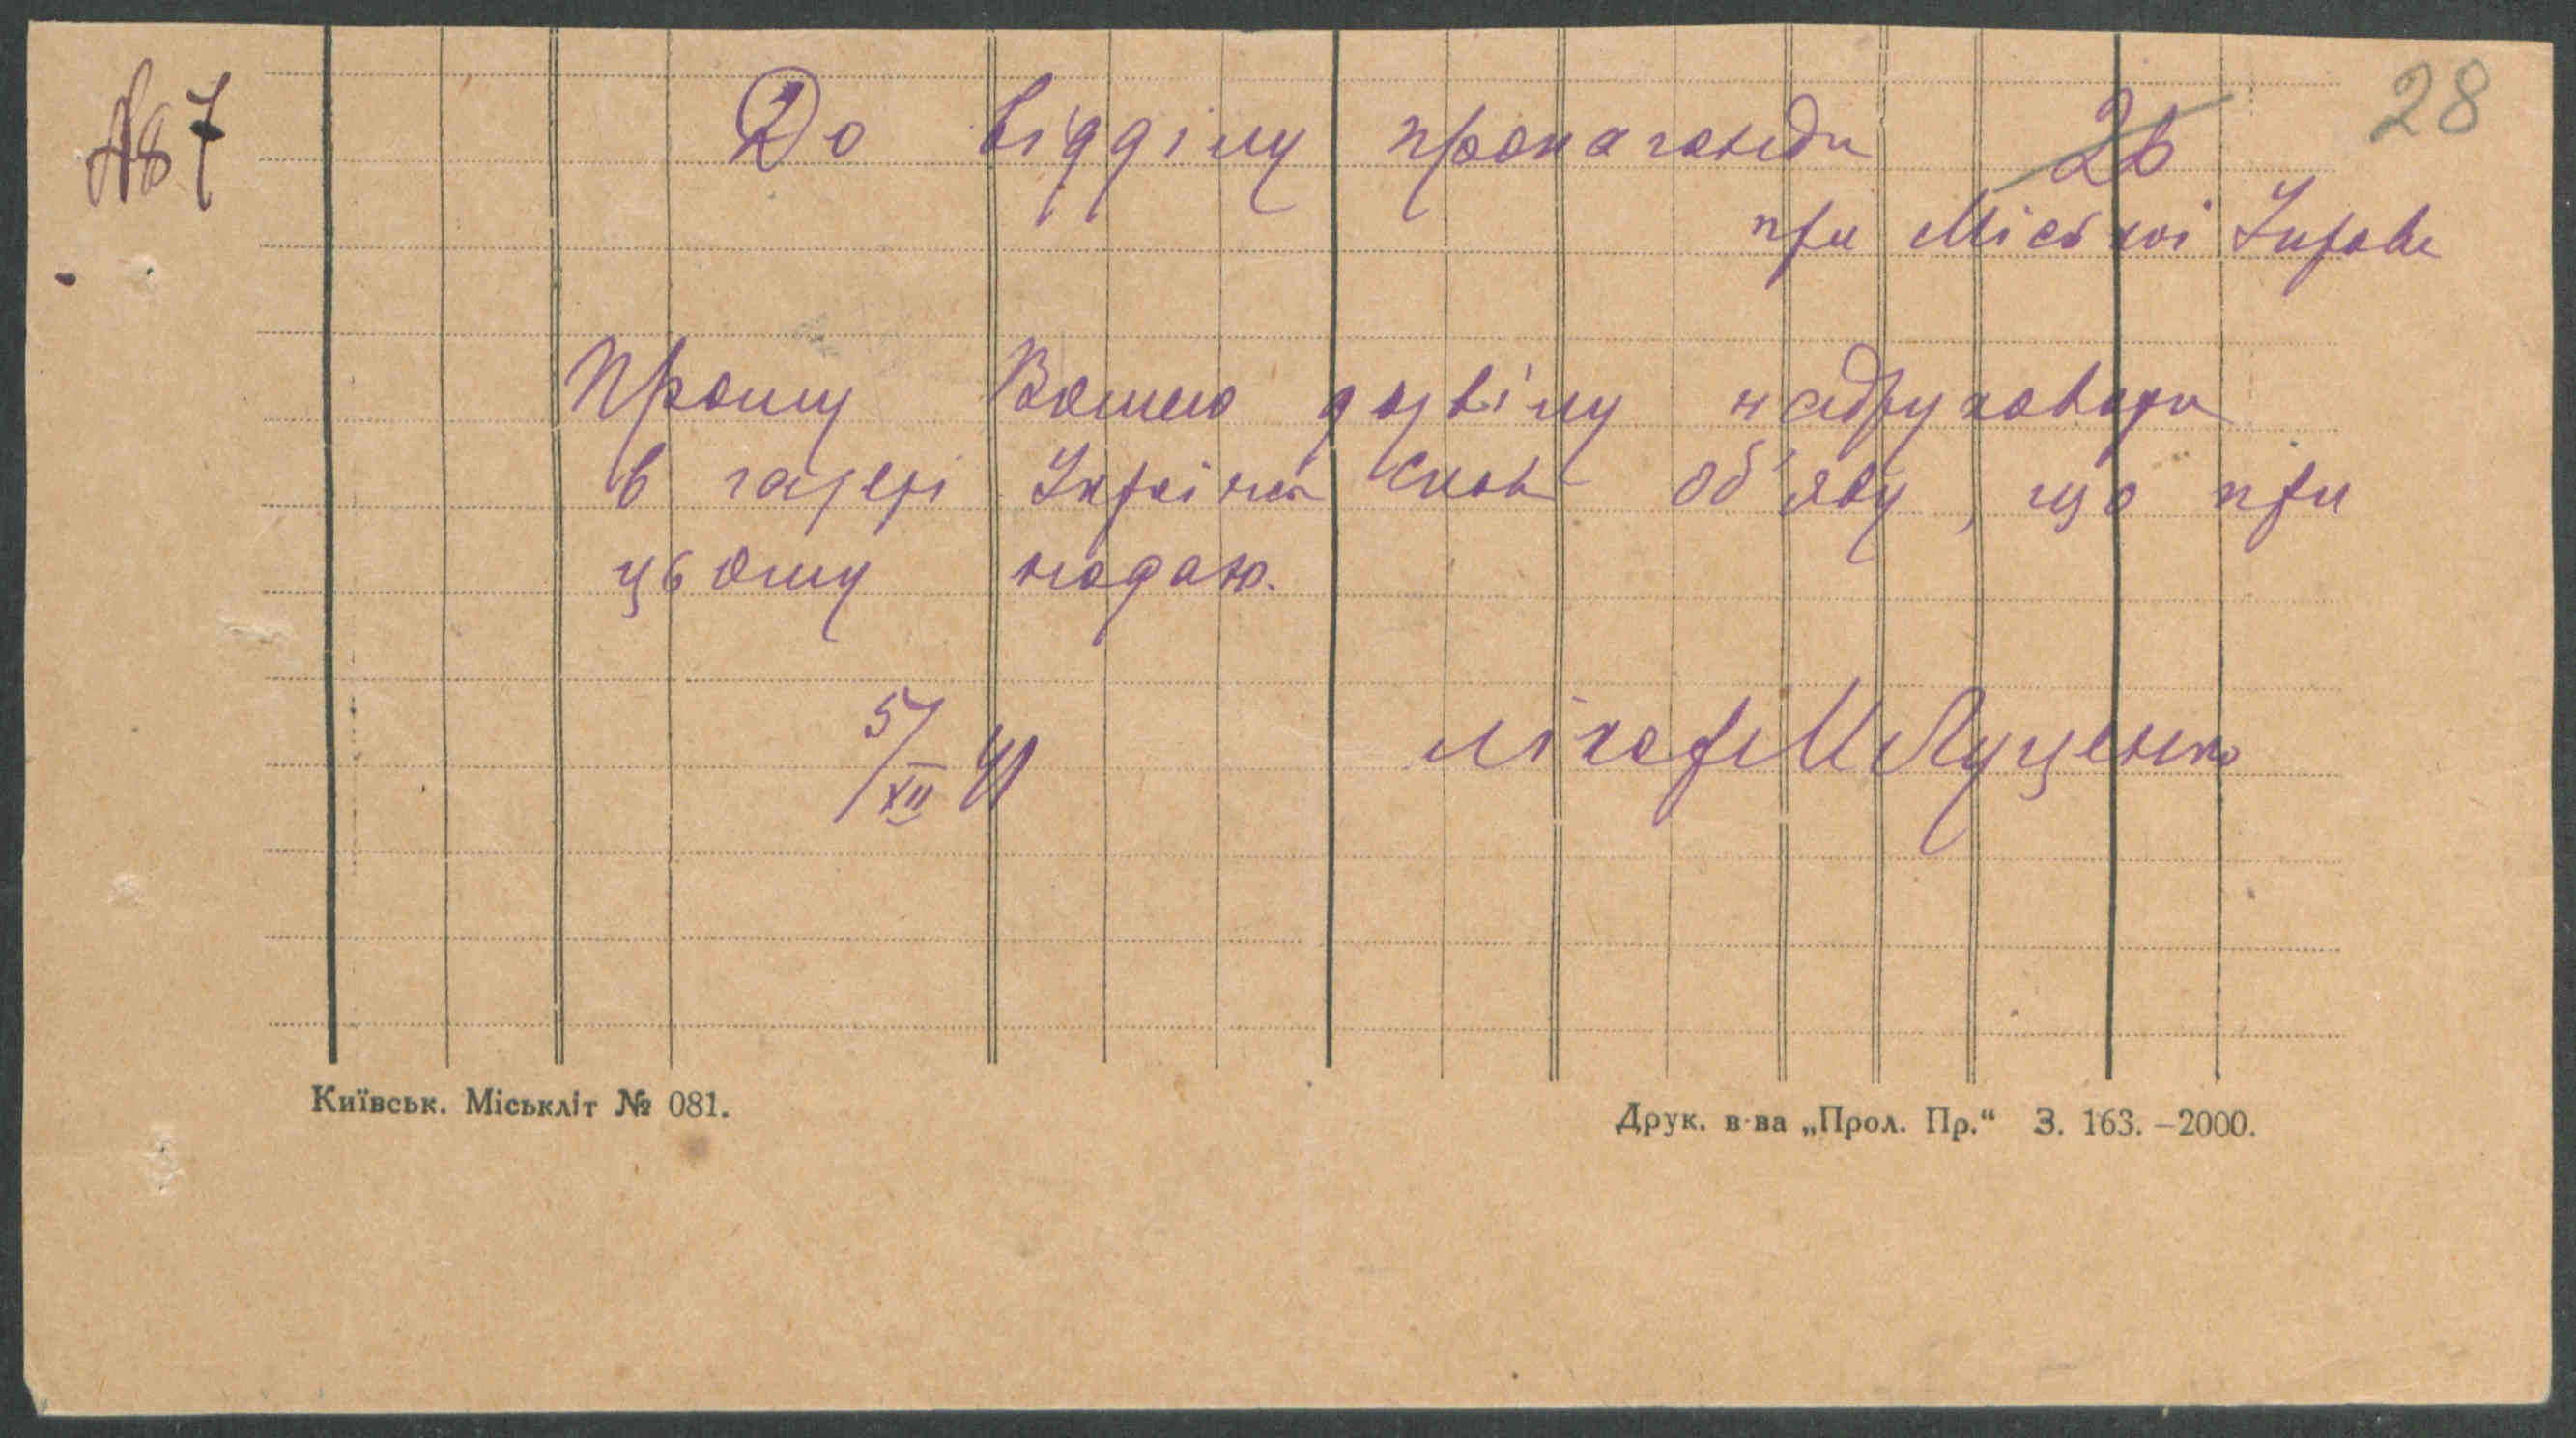 № 87
До відділу пропаганди 26 28
при Міській Управі
Прошу Вашего дозвілу надруковати
в газеті Українськ Слов об'яву, що при
цьому подаю.
5/XII 41 лікарь М Луценко
Київськ. Міськліт № 081.
Друк. в-ва „Прол. Пр.“ З. 163. –2000.